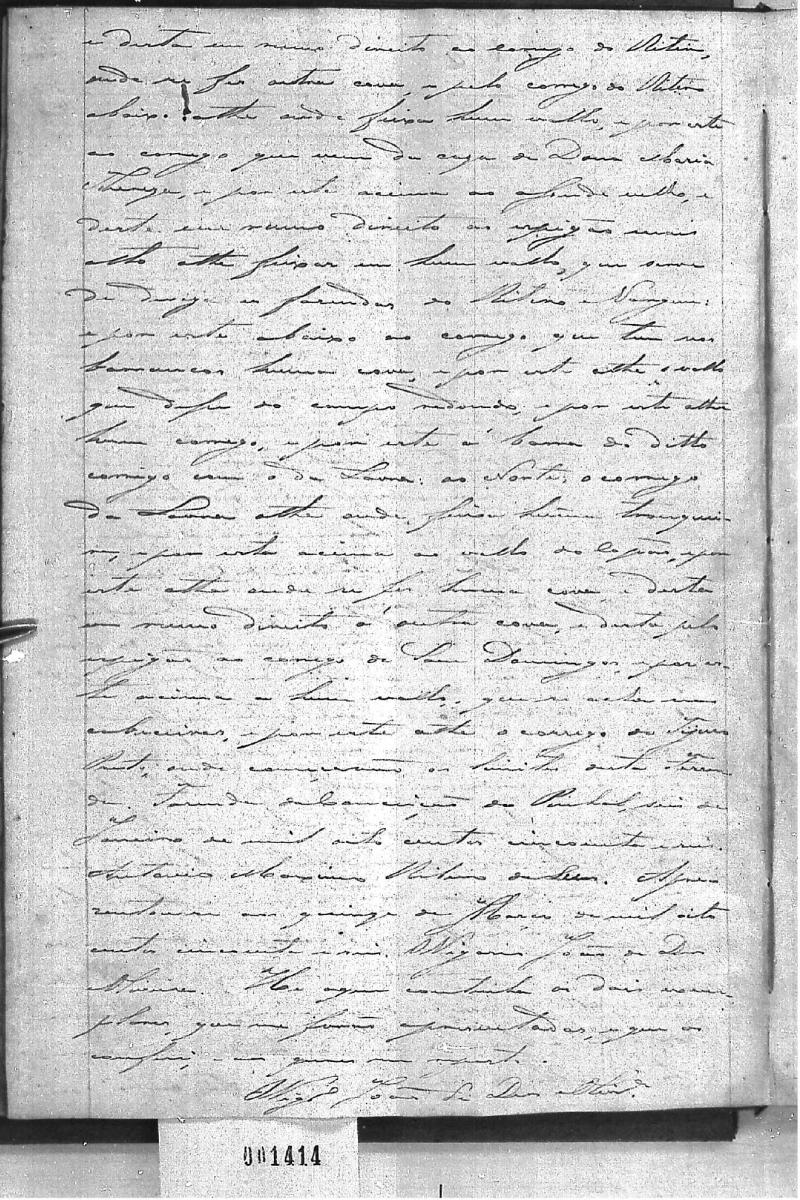 e desta em rumo direito ao corrego do Ritiro,
onde se fes outra cova, e pelo corrego do Ritiro
abaixo athe onde feixa hum vallo, e por este
ao corrego que vem da caza de Dona Maria
Thereza, e por este acima ao assude velho, e
deste em rumo direito ao espigão mais
alto athe feixar em hum vallo, que serve
de diviza as fazendas do Ritiro e
e por este abaixo ao corrego, que tem nos
barrancos huma cova, e por este athe o vallo
que do campo redondo, e por este athe
hum corrego, e por este á barra do ditto
corrego com o da Lavra: ao Norte; o corrego
da Lavra athe onde feixa huma tranquei-
ra, e por esta acima ao vallo do capão, e por
este athe onde se fes huma cova e desta
em rumo direito á outra cova, e desta pelo
espigão ao corrego de Sam Domingos, e por es-
te acima a hum vallo, que se acha nas
cabeceiras, e por este athe o corrego do
Preto, onde comessarão os limites desta Fazen-
da. Fazenda da Conceição do Pinhal, seis de
Janeiro de mil oito centos cincoenta e seis.
Antonio Maximo Ribeiro da Apre-
zentou-se aos quinze de Março de mil oito
centos cincoenta e seis. O Vigario João de Deos
He o que continha os dois exem-
plares, que me forão aprezentados, e que os
conferi, e aos quaes me reporto.
O Vigr.º João de Deos
001414